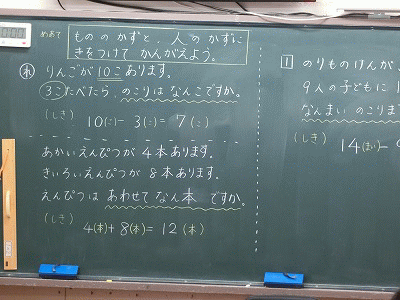 めあて
もののかずと、人のかずに
きをつけて かんがえよう。
れ りんごが 10こ あります。
3こ たべたら、のこりは なんこですか。
(しき)
10(こ)-3(こ)=7(こ)
あかいえんぴつが 4本あります。
きいろいえんぴつが 8本あります。
えんぴつは あわせて なん本 ですか。
(しき)
4(本)+8(本)=12(本)
1 のりものけんが、
9人の子どもに 1
なんまい のこりま
(しき)
14(まい)-9